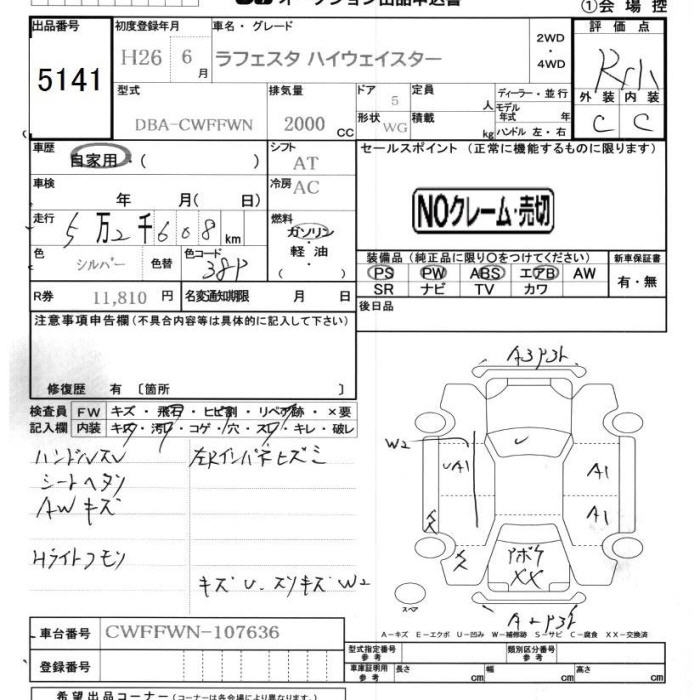 オークション出品申込書
①会場控
出品番号 5141
初度登録年月 H26 6月
車名・グレード ラフェスタ ハイウェイスター
2WD
・
4WD
評価点
外装 内装
C C
型式 DBA-CWFFWN
排気量 2000 CC
ドア 5
定員 人
形状 WG
積載 kg
ディーラー・並行
モデル年式 年
ハンドル 左・右
車歴 自家用・( )
シフト AT
車検 年 月( 日)
冷房 AC
走行 5万2千608km
燃料 ガソリン・軽油・( )
色 シルバー 色替
色コード 38P
R券 11,810円
名変通知期限 月 日
セールスポイント(正常に機能するものに限ります)
NOクレーム・売切
装備品(純正品に限り○をつけてください)
PS PW ABS エアB AW
SR ナビ TV カワ
新車保証書
有・無
後日品
注意事項申告欄(不具合内容等は具体的に記入して下さい)
修復歴 有〔箇所 〕
検査員記入欄
FW キズ・飛石・ヒビ割・リペア跡・×要
内装 キズ・汚レ・コゲ・穴・スレ・キレ・破レ
ハンドルスレ
シートヘタリ
AWキズ
Hライトクモリ
左Rインパネヒズミ
キズU.スリキズW2
W2
UA1
A1
A1
XX
スペア
A-キズ E-エクボ U-凹み W-補修跡 S-サビ C-腐食 XX-交換済
車台番号 CWFFWN-107636
登録番号
型式指定番号 参考
類別区分番号 参考
車庫証明用 参考 長さ cm 幅 cm 高さ cm
希望出品コーナー(コーナーは各会場により異なります)